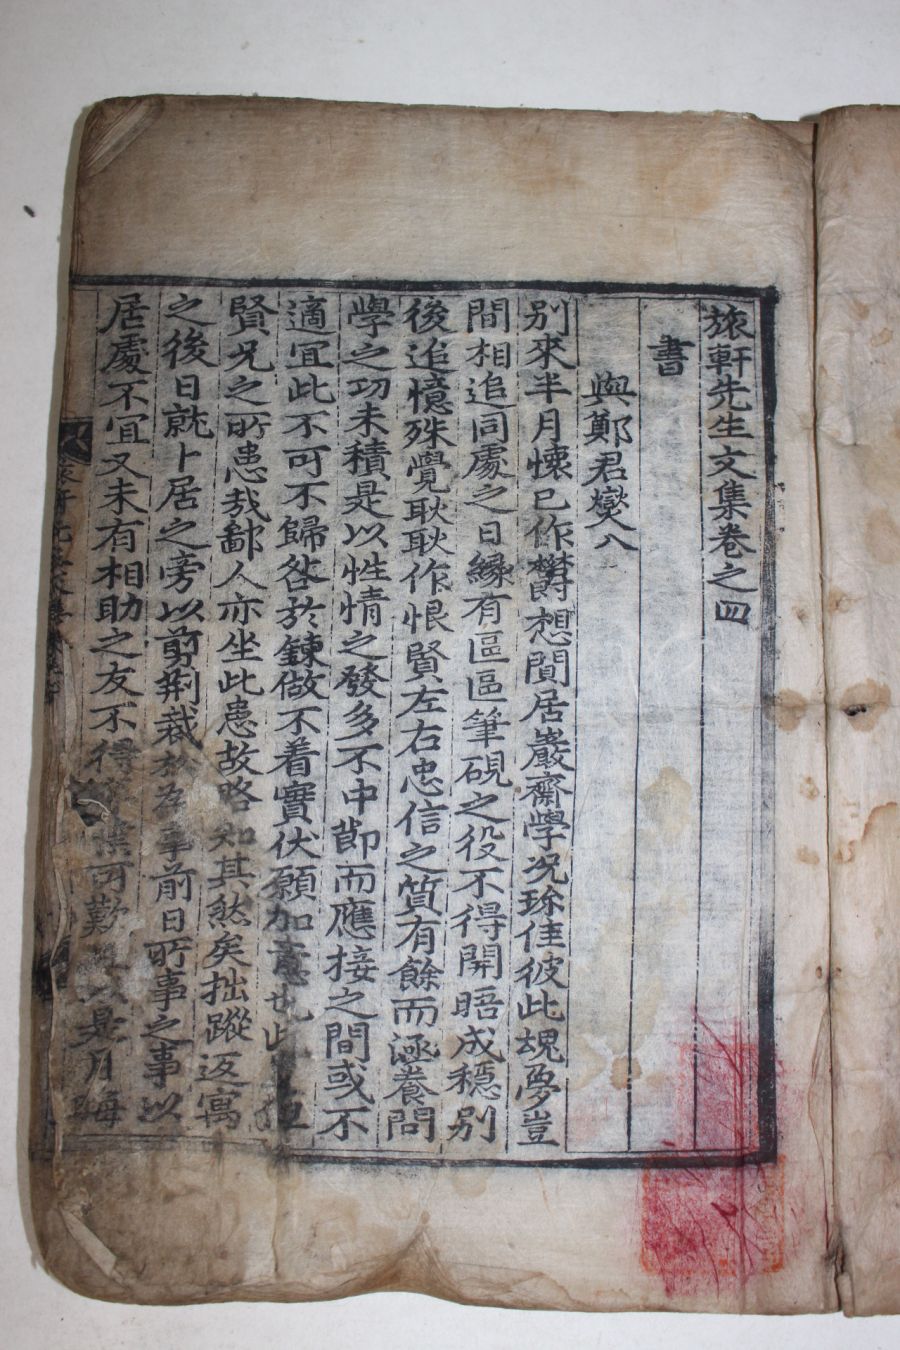 旅軒先生文集卷之四
書
與鄭君燮八
別來半月懷已作欝想閴居巖齋學况珎佳彼此魂夢豈
間相追同處之日緣有區區筆硯之役不得開晤成穩別
後追憶殊覺耿耿作恨賢左右忠信之質有餘而涵養問
學之功未積是以性情之發多不中節而應接之間或不
適宜此不可不歸咎於鍊做不着實伏願加意也此
賢兄之所患哉鄙人亦坐此患故略知其然矣拙蹤返寓
之後日就卜居之旁以剪荆裁 爲事前日所事之事以
居處不宜又未有相助之友不得 業可歎 是月晦